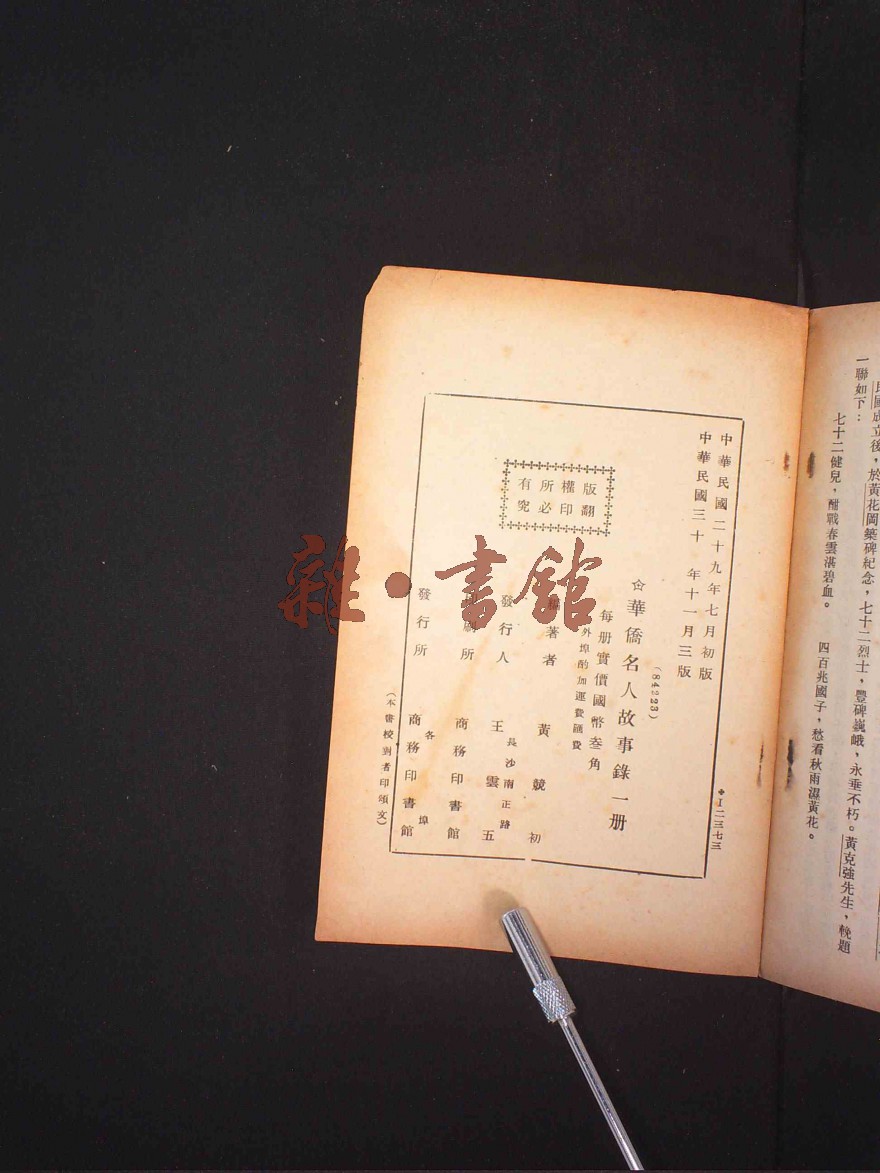 民國成立後，於黃花岡築碑紀念，七十二烈士，豐碑巍峨，永垂不朽。黃克強先生，輓題
一聯如下：
七十二健兒，酣戰春雲湛碧血。　四百兆國子，愁看秋雨濕黃花。
中華民國二十九年七月初版
中華民國三十年十一月三版
✥I二三七三
(84223)
華僑名人故事錄一册
每册實價國幣叁角
外埠酌加運費匯費
版權所有
翻印必究
編著者　黃競初
長沙南正路
發行人　王雲五
印刷所　商務印書館
各埠
發行所　商務印書館
（本書校對者印頌文）
雜·書館